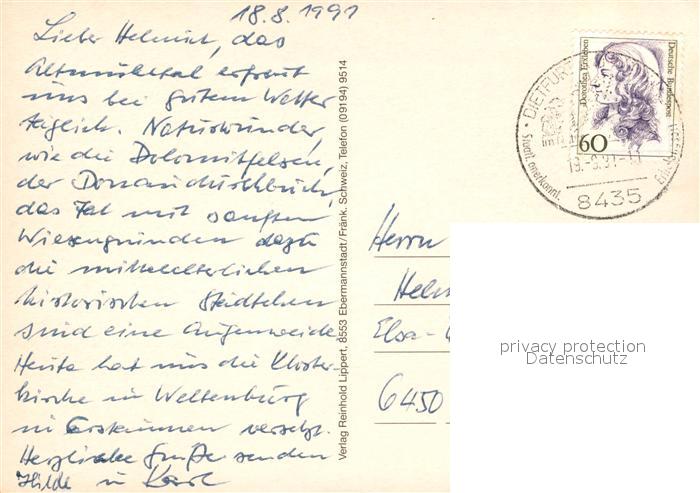 18.8.1991
Lieber Helmut, das
Altmühltal erfreut
uns bei gutem Wetter
täglich. Naturwunder,
wie die Dolomitfelsen,
der Donaudurchbruch,
das Tal mit sanften
Wiesengründen dazu
die mittelalterlichen
historischen Städtchen
sind eine Augenweide.
Heute hat uns die Kloster-
kirche in Weltenburg
in Erstaunen versetzt.
Herzliche Grüße senden
Hilde u Karl
Verlag Reinhold Lippert, 8553 Ebermannstadt/Fränk. Schweiz, Telefon (09194) 9514
Deutsche Bundespost
Dorothea Erxleben
60
DIETFURT
Staatl. anerkannt.
8435
Herrn
Helm
Elsa-
6450
privacy protection
Datenschutz